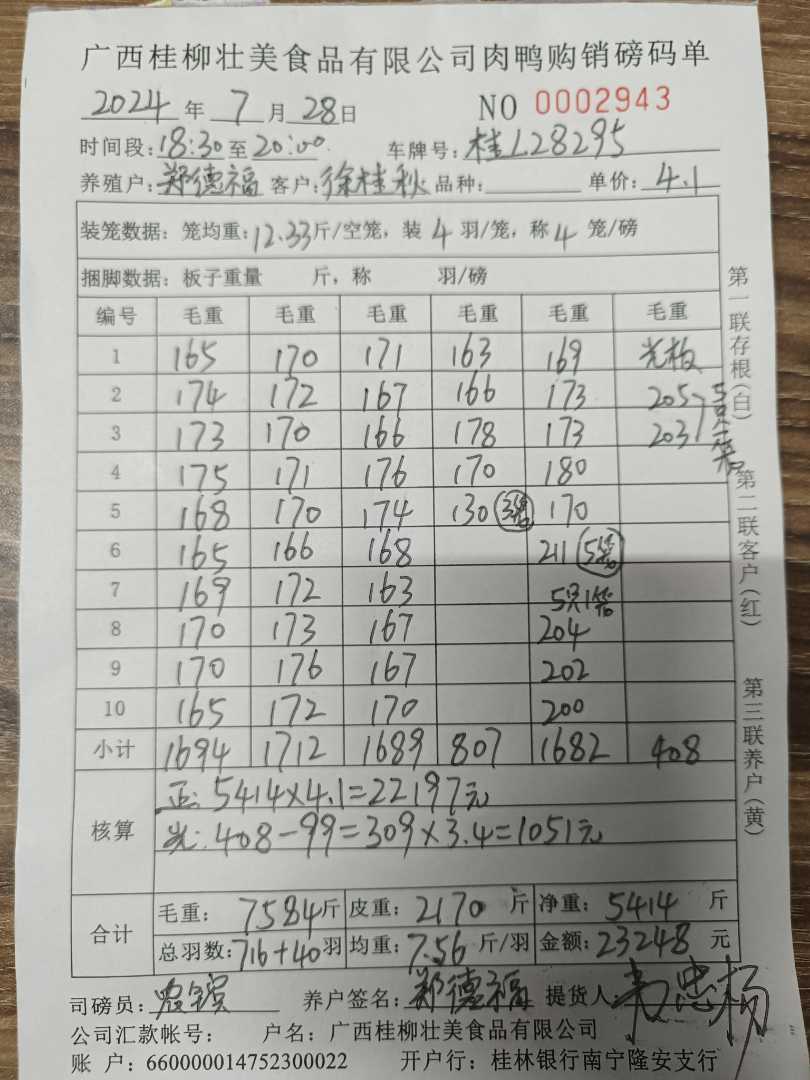 广西桂柳壮美食品有限公司肉鸭购销磅码单
2024年7月28日 NO 0002943
时间段:18:30至20:00 车牌号:桂L28295
养殖户:郑德福 客户:徐桂秋 品种: 单价:4.1
装笼数据:笼均重:12.33斤/空笼,装4羽/笼,称4笼/磅
捆脚数据:板子重量 斤,称 羽/磅
编号 毛重 毛重 毛重 毛重 毛重 毛重
1 165 170 171 163 169 光板
2 174 172 167 166 173 205
3 173 170 166 178 173 203
4 175 171 176 170 180
5 168 170 174 130 3笼 170
6 165 166 168 211 5笼
7 169 172 163 5只1笼
8 170 173 167 204
9 170 176 167 202
10 165 172 170 200
小计 1694 1712 1689 807 1682 408
核算
正:5414×4.1=22197元
光:408-99=309×3.4=1051元
合计
毛重:7584斤 皮重:2170斤 净重:5414斤
总羽数:716+40羽 均重:7.56斤/羽 金额:23248元
司磅员: 养户签名:郑德福 提货人:韦忠杨
公司汇款帐号: 户名:广西桂柳壮美食品有限公司
账 户:660000014752300022 开户行:桂林银行南宁隆安支行
第一联存根(白)
第二联客户(红)
第三联养户(黄)